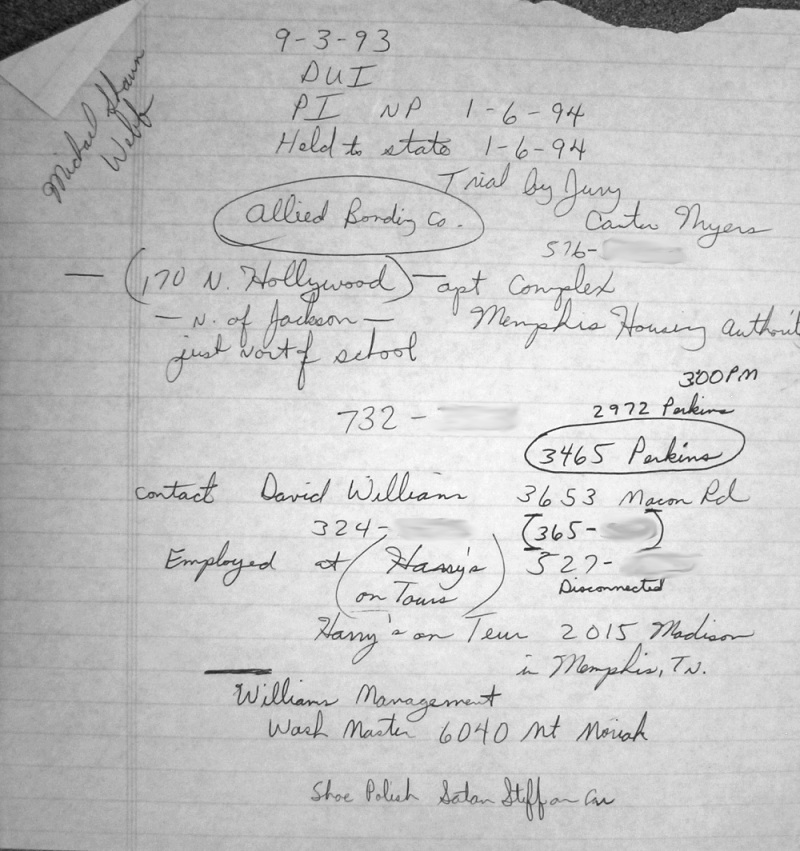 Michael Shawn
Webb
9-3-93
DUI
PI NP 1-6-94
Held to state 1-6-94
Trial by Jury
Allied Bonding Co.
Carter Myers
576-
— (170 N. Hollywood) — apt Complex
— N. of Jackson —
Memphis Housing Authorit
just nort of school
300 PM
732 -
2972 Perkins
3465 Perkins
contact David William
3653 Macon Rd
324-
(365- )
Employed at (Harry's
on Tours)
527-
Disconnected
Harry's on Teur 2015 Madison
in Memphis, TN.
Williams Management
Wash Master 6040 Mt Moriah
Shoe Polish Satan Stiff on Car